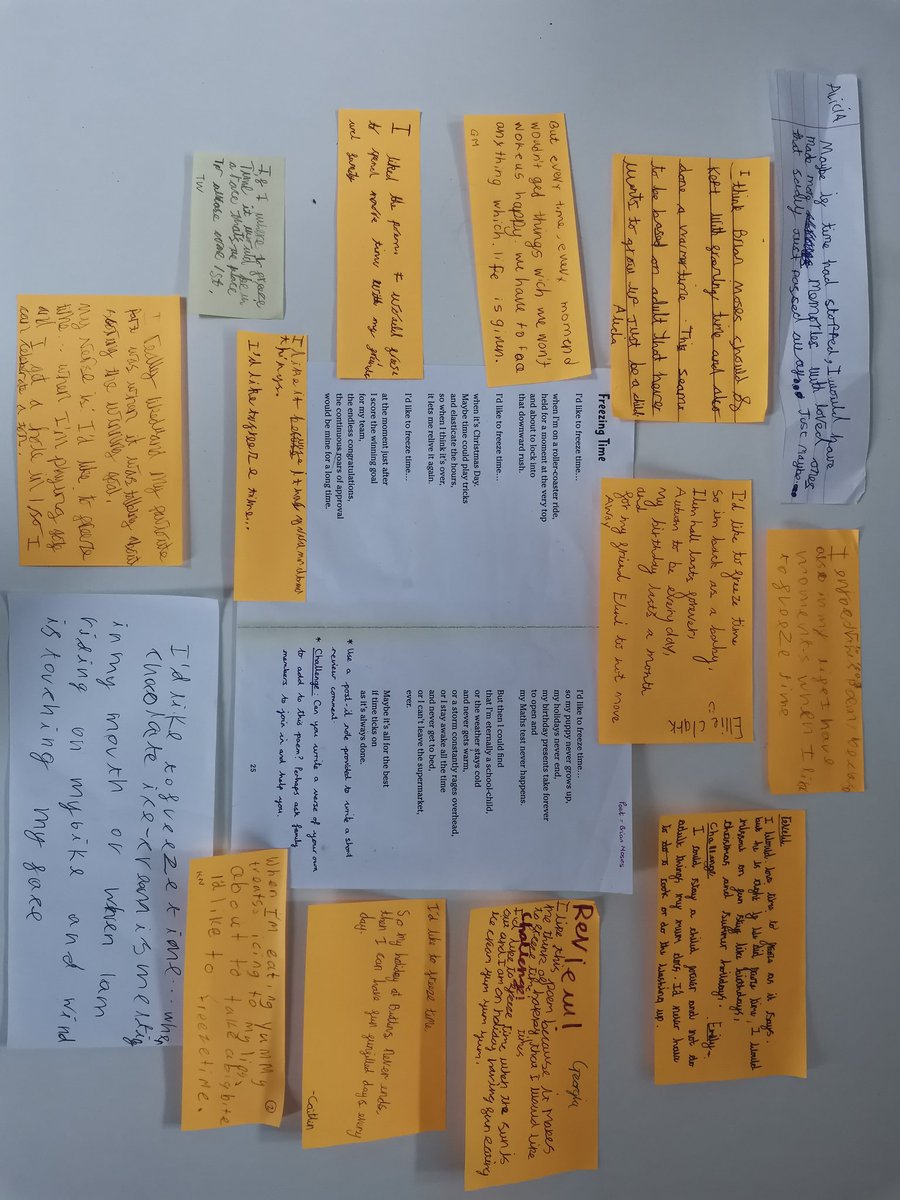 Freezing Time
I'd like to freeze time...
when I'm on a roller-coaster ride,
held for a moment at the very top
and about to lock into
that downward rush.
I'd like to freeze time...
when it's Christmas Day.
Maybe time could play tricks
and elasticate the hours,
so when I think it's over,
it lets me relive it again.
I'd like to freeze time...
at the moment just after
I score the winning goal
for my team,
the endless congratulations,
the continuous roars of approval
would be mine for a long time.
Poet - Brian Moses
I'd like to freeze time...
so my puppy never grows up,
my holidays never end,
my birthday presents take forever
to open and
my Maths test never happens.
But then I could find
that I'm eternally a school-child,
or the weather stays cold
and never gets warm,
or a storm constantly rages overhead,
or I stay awake all the time
and never get to bed,
or I can't leave the supermarket,
ever.
Maybe it's all for the best
if time ticks on
as it's always done.
25
* Use a post-it note provided to write a short
review comment
* Challenge: Can you write a verse of your own
to add to this poem? Perhaps ask family
members to join in and help you.
Alicia
Maybe if time had stopped, I would have
made more memories with loved ones
that sadly just passed away. Just maybe...
I think Brian moses should of
kept with freezing time and not
done a
to be based on adult that
wants to grow up Just be a child
Alicia
But every time, every momend
wouldn't get things wich we won't
wokeus happy. we have to face
anything which life is given.
GM
I liked the poem. I would freeze
to spend more time with my friends
and family
If I where to freeze
Time it would be in
a place thats a place
TW
I'd like to freeze time...
I really liked my favourite
was when it was talking about
scoring the winning goal
my verse is I'd like to freeze
time... when I'm playing golf
and I get a hole in 1 so I
can celebrate a ton.
I'd like to freeze time
So im back as a baby
lasts forever,
Autumn to be every day,
My birthday lasts a month
and
for my friend Eleni to not move
Away
Lilli Clark
moments when I like
to freeze time
I would love time to freeze as it says.
but he is right if we did freeze time, I would
on fun stuff like birthdays,
christmas and summer holidays.
Emily
Challenge
I could stay a child forever and not do
adult things my mum does. I'd never have
to cook or do the washing up.
Review!
Georgia
I like this poem because it makes
me think of happy
to freeze time
Challenge!
I'd like to freeze time when the sun is
out and I am on holiday having fun eating
ice cream yum yum yum.
I'd like to freeze time
So my holiday at Butlins never ends,
then I can have fun funfilled days every
day.
-Caitlin
When I'm eating yummy
treats, icing to my lips,
about to take a big bite
I'd like to freeze time.
KN
I'd like to freeze time... when
chocolate ice-cream is meltig
in my mouth or when I am
riding on my bike and wind
is touching my face